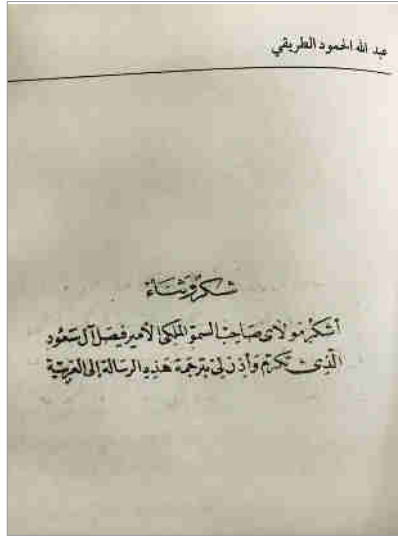 عبد الله الحمود الطريقي
شكر وثناء
أشكر مولاى صاحب السمو الملكى الأمير فيصل آل سعود
الذى تكرم وأذن لى بترجمة هذه الرسالة إلى العربية